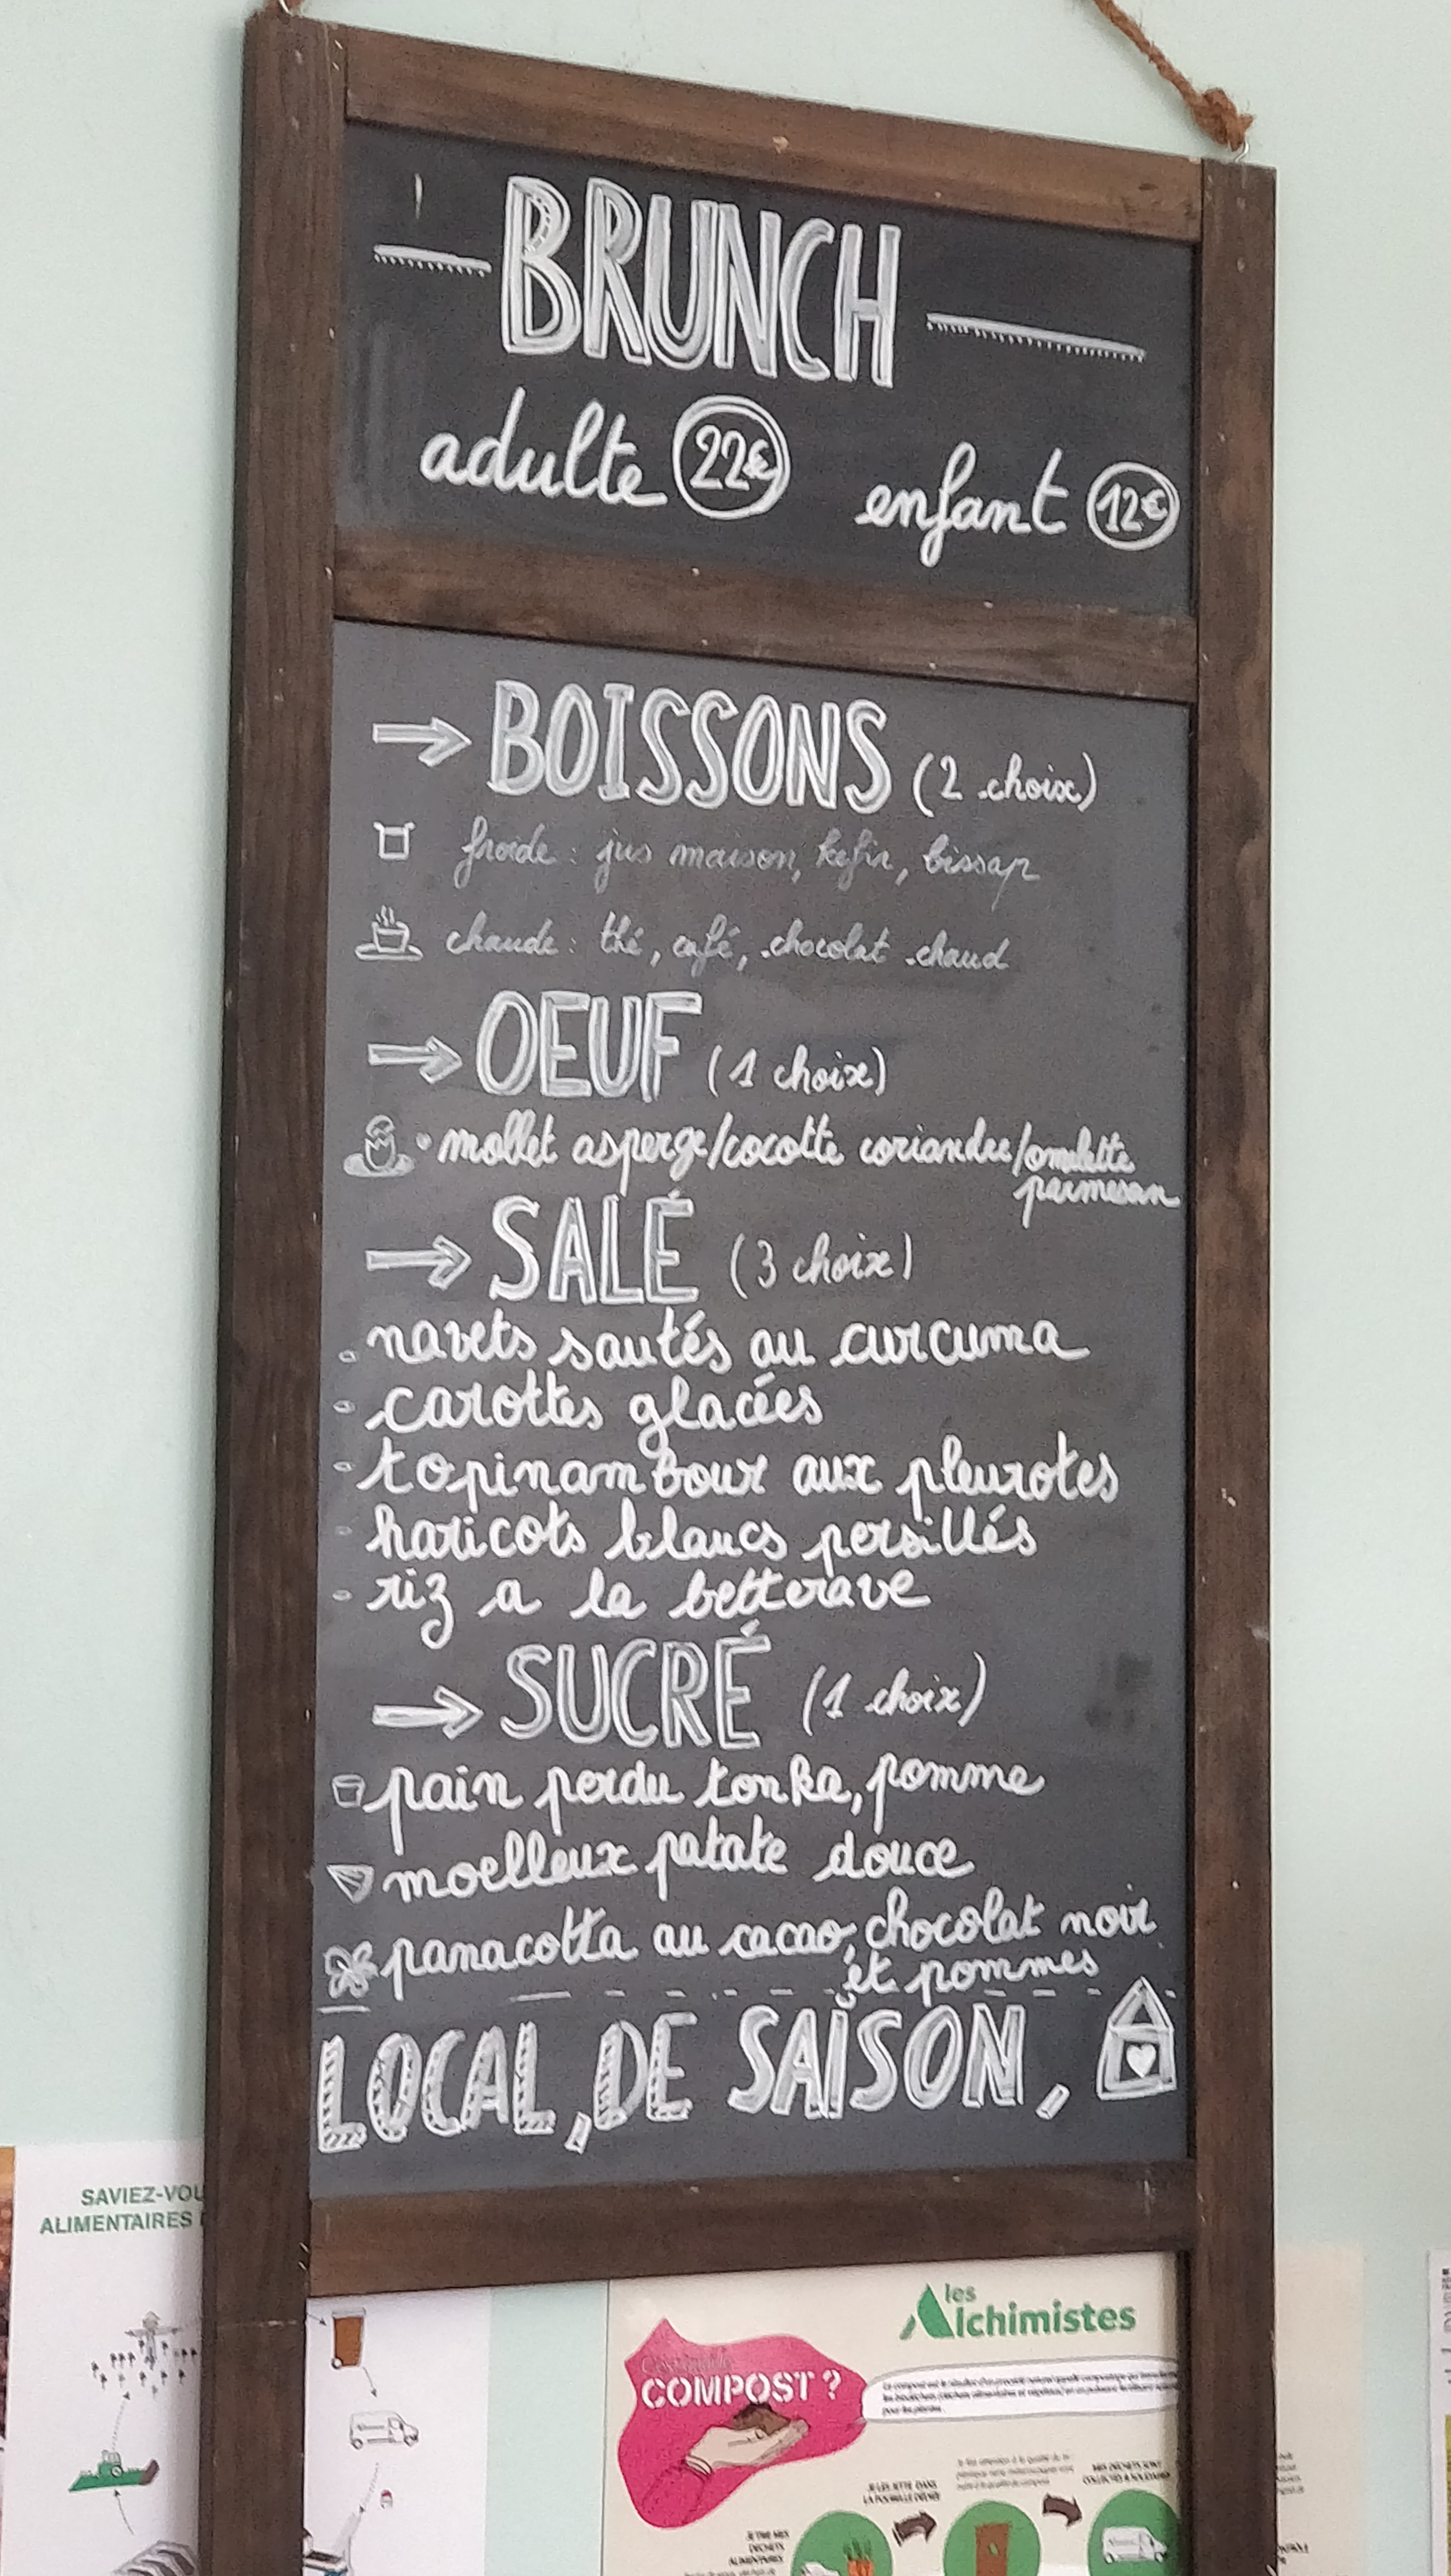 BRUNCH
adulte 22€ enfant 12€
BOISSONS (2 choix)
froide : jus maison, kefir, bissap
chaude : thé, café, chocolat chaud
OEUF (1 choix)
mollet asperge/cocotte coriandre/omelette
parmesan
SALÉ (3 choix)
navets sautés au curcuma
carottes glacées
topinambour aux pleurotes
haricots blancs persillés
riz a la betterave
SUCRÉ (1 choix)
pain perdu tonka, pomme
moelleux patate douce
panacotta au cacao, chocolat noir
et pommes
LOCAL, DE SAISON,
SAVIEZ-VOU
ALIMENTAIRES
les
Alchimistes
COMPOST ?
JE LES JETTE DANS
LA POUBELLE DÉDIÉE
MES DÉCHETS SONT
JE TRIE MES
DÉCHETS
ALIMENTAIRES